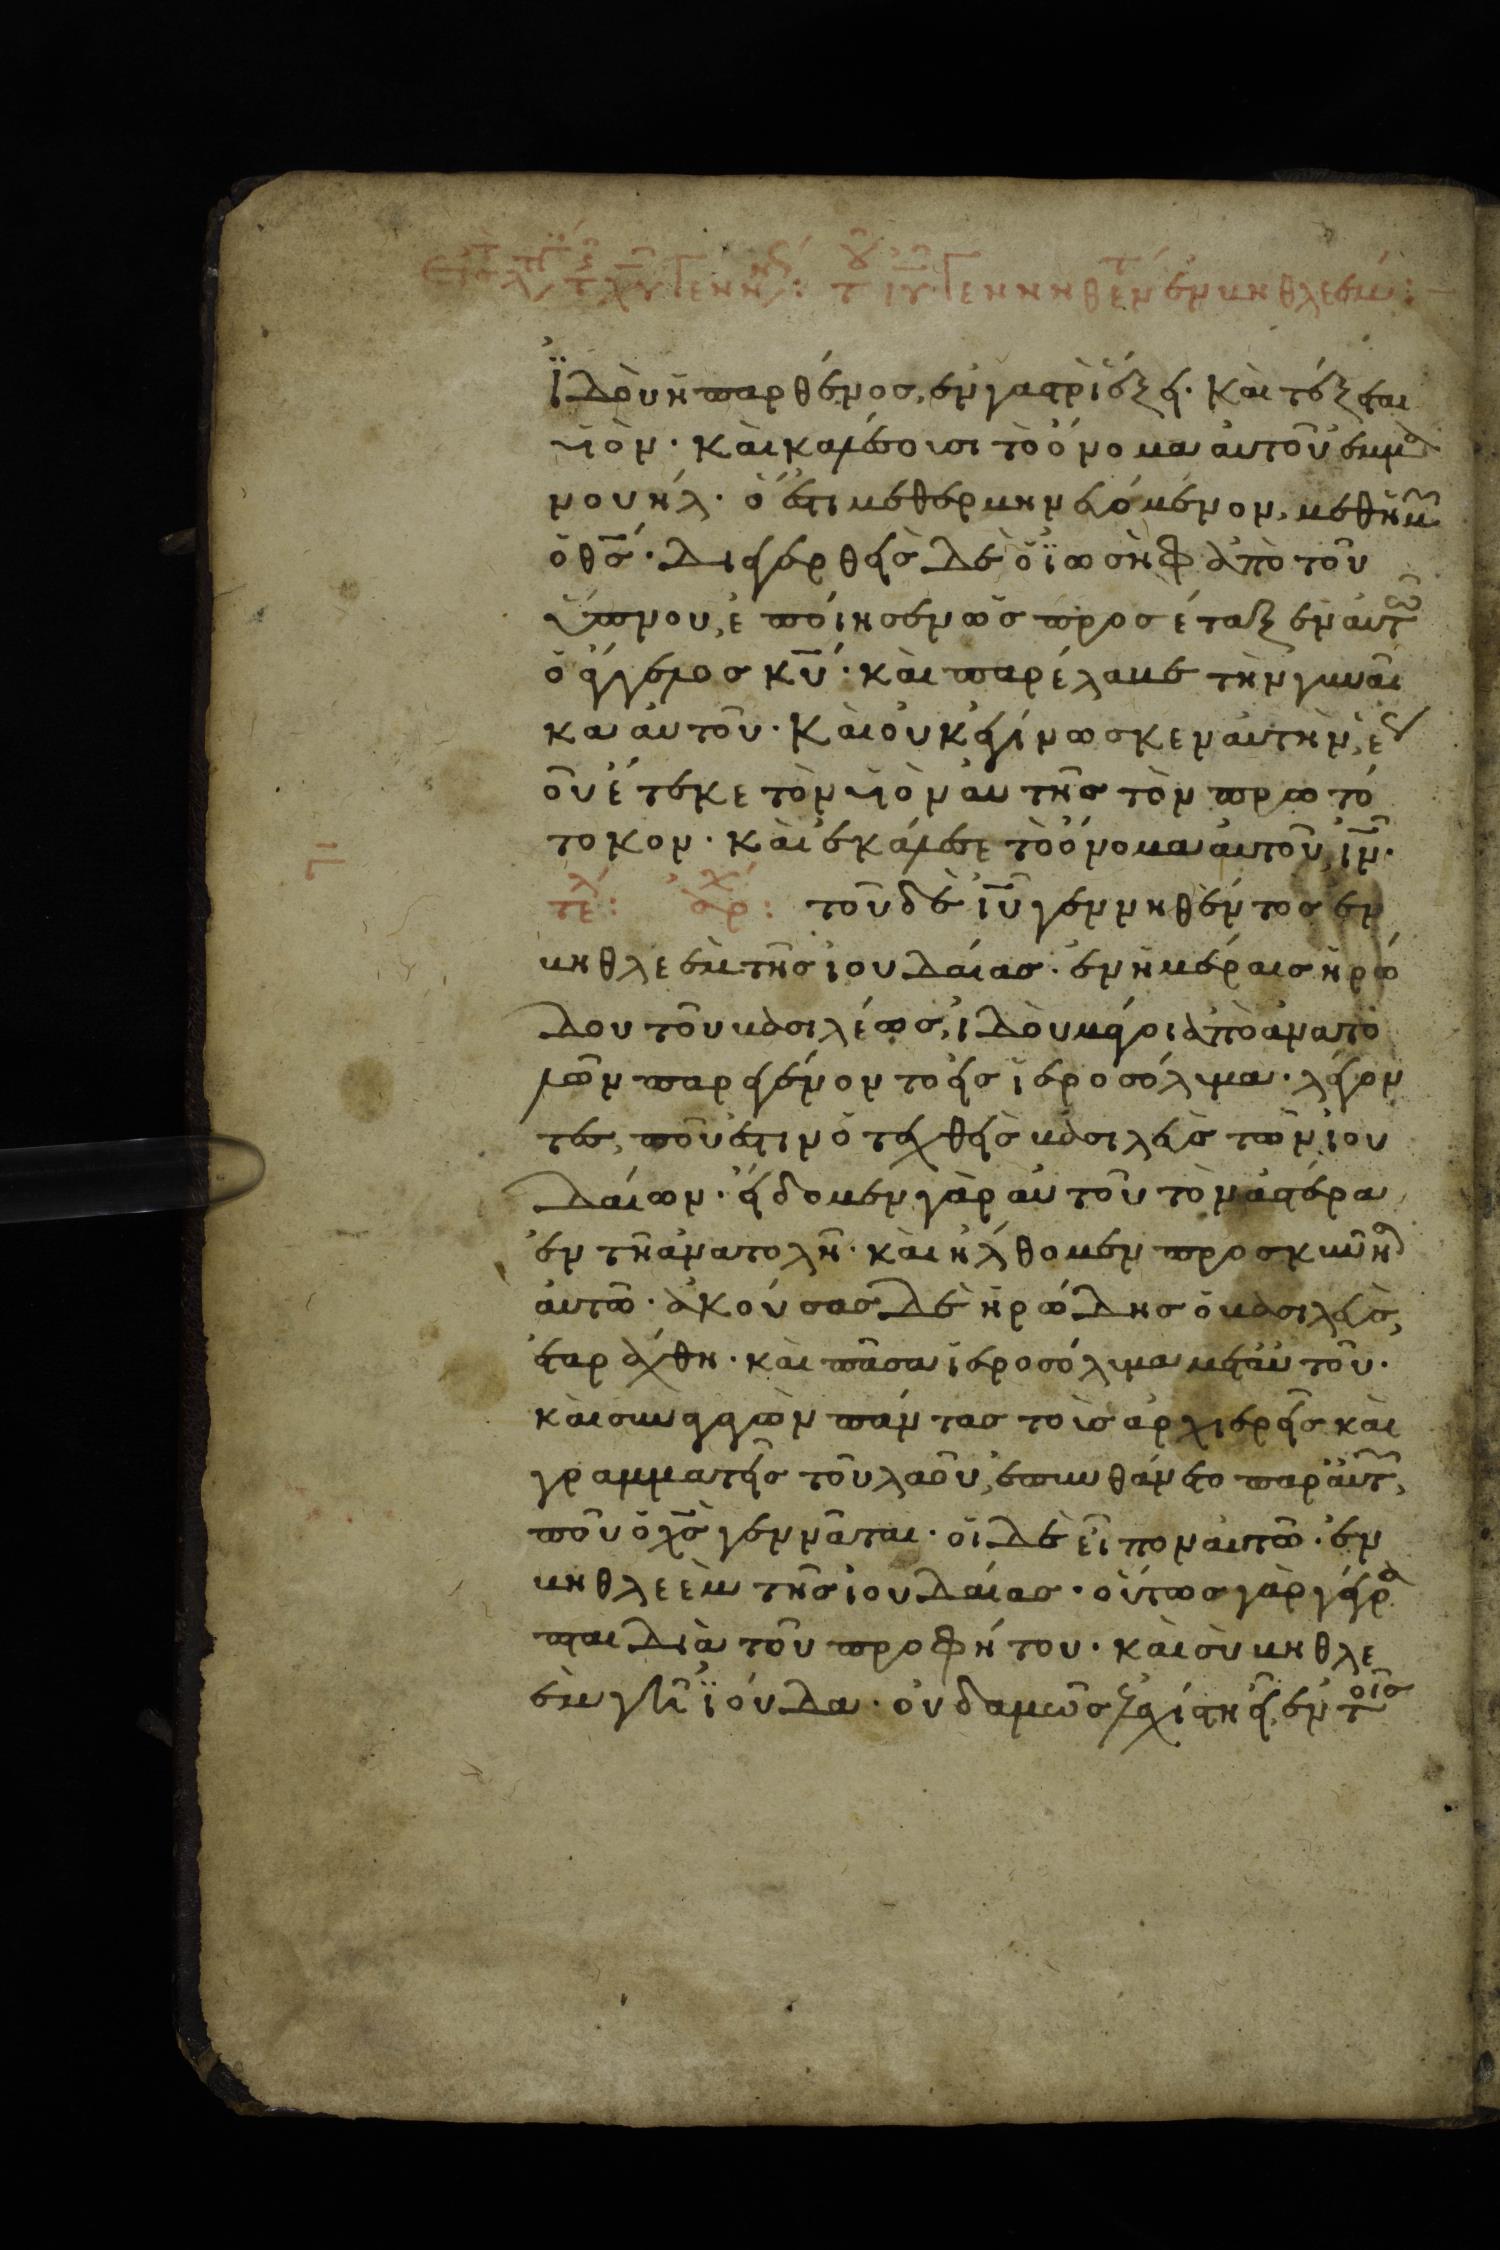 ἰδοὺ ἡ παρθένος, ἐν γαστρὶ ἕξει· καὶ τέξεται
υἱὸν· καὶ καλέσουσι τὸ ὄνομα αὐτοῦ ἐμμα
νουήλ· ὅ ἐστι μεθερμηνευόμενον, μεθ ἡμῶν
ὁ θσ· διεγερθεὶς δὲ ὁ ἰωσὴφ ἀπὸ τοῦ
ὕπνου, ἐποίησεν ὡς προσέταξεν αὐτῶ
ὁ ἄγγελος κυ· καὶ παρέλαβε τὴν γυναῖ
κα αὐτοῦ· καὶ οὐκ ἐγίνωσκεν αὐτὴν, ἕως
οὗ ἔτεκε τὸν υἱὸν αὐτῆς τὸν πρωτό
τοκον· καὶ ἐκάλεσε τὸ ὄνομα αὐτοῦ, ιν·
τελ: ἀρχ: τοῦ δὲ ιυ γεννηθέντος ἐν
βηθλεὲμ τῆς ἰουδαίας· ἐν ἡμέραις ἡρώ
δου τοῦ βασιλέως, ἰδοὺ μάγοι ἀπὸ ἀνατο
λῶν παρεγένοντο εἰς ἱεροσόλυμα· λέγον
τες, ποῦ ἐστιν ὁ τεχθεὶς βασιλεὺς τῶν ἰου
δαίων· εἴδομεν γὰρ αὐτοῦ τὸν ἀστέρα
ἐν τῆ ἀνατολῆ· καὶ ἤλθομεν προσκυνῆσαι
αὐτῶ· ἀκούσας δὲ ἡρώδης ὁ βασιλεὺς,
ἐταράχθη· καὶ πᾶσα ἱεροσόλυμα μετ αὐτοῦ·
καὶ συναγαγὼν πάντας τοὺς ἀρχιερεῖς καὶ
γραμματεῖς τοῦ λαοῦ, ἐπυνθάνετο παρ αὐτῶν,
ποῦ ὁ χσ γεννᾶται· οἱ δὲ εἶπον αὐτῶ· ἐν
βηθλεὲμ τῆς ἰουδαίας· οὕτως γὰρ γέγρα
πται διὰ τοῦ προφήτου· καὶ σὺ βηθλε
ὲμ γῆ ἰούδα· οὐδαμῶς ἐλαχίστη εἶ, ἐν τοῖς